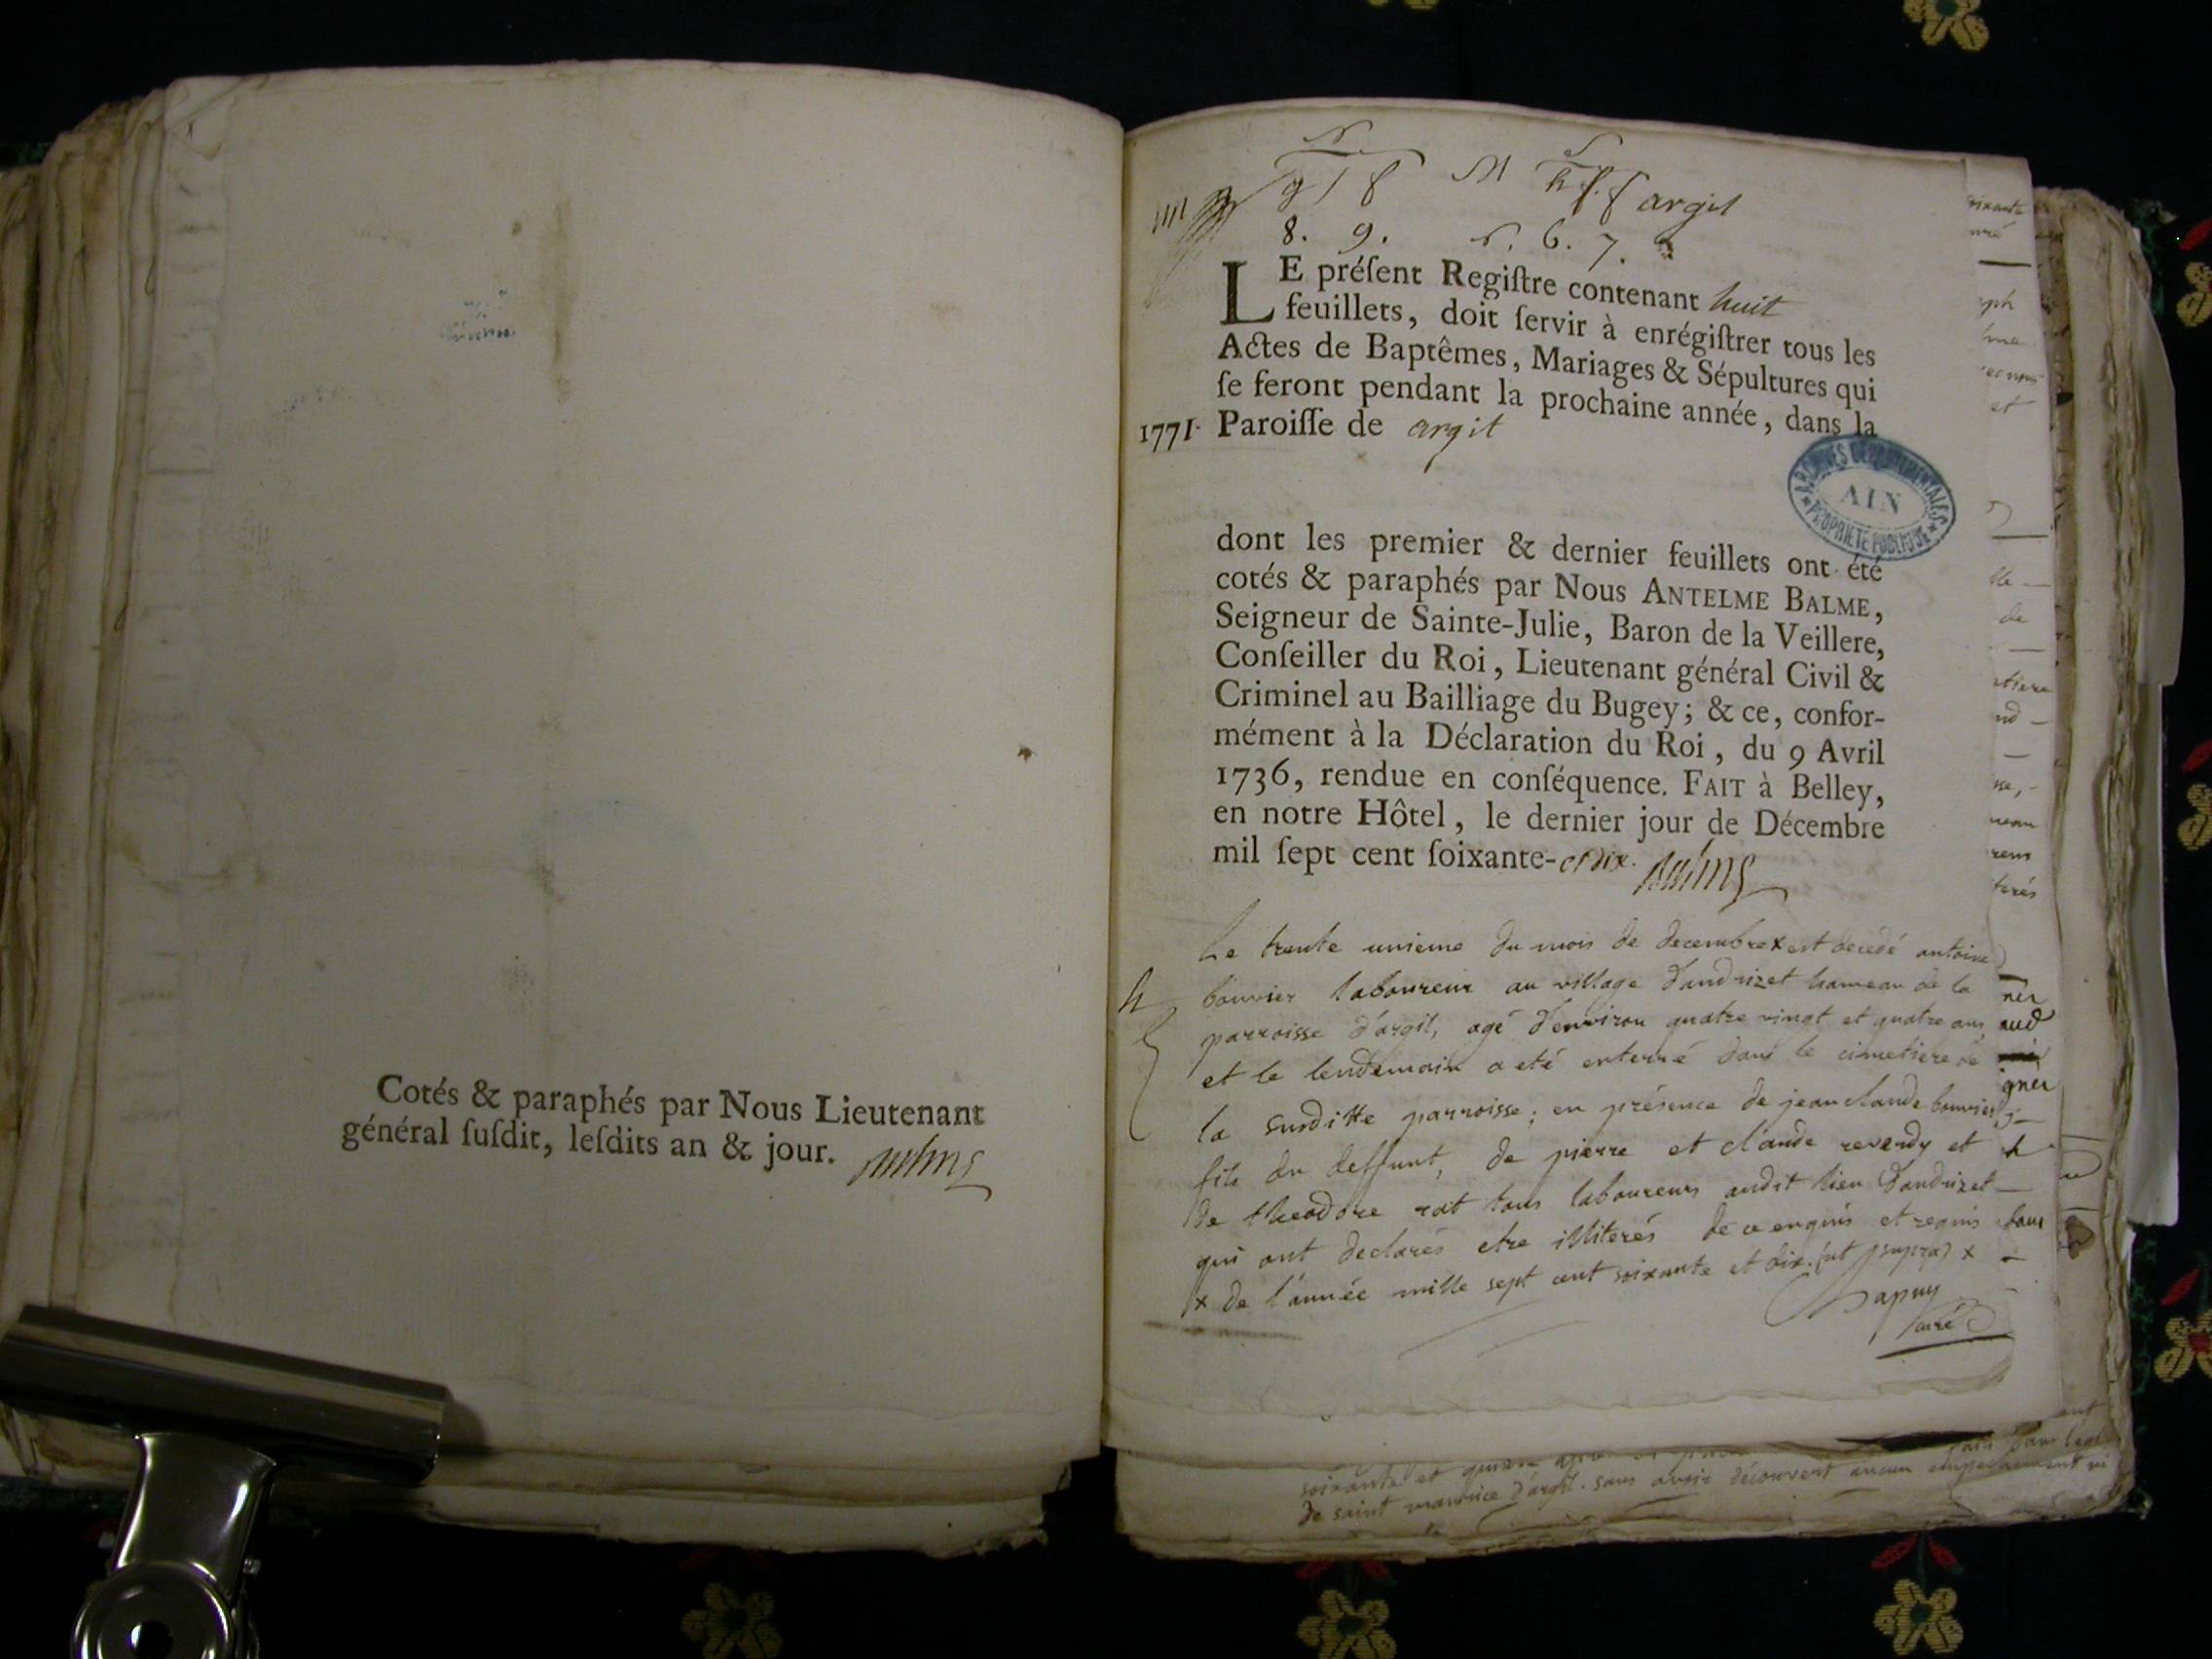 Cotés & paraphés par Nous Lieutenant
général ſuſdit, leſdits an & jour.
argit
8. 9. 6. 7.
LE préſent Regiſtre contenant huit
feuillets, doit ſervir à enrégiſtrer tous les
Actes de Baptêmes, Mariages & Sépultures qui
ſe feront pendant la prochaine année, dans la
1771. Paroiſſe de argit
ARCHIVES DÉPARTEMENTALES
AIN
PROPRIÉTÉ PUBLIQUE
dont les premier & dernier feuillets ont été
cotés & paraphés par Nous ANTELME BALME,
Seigneur de Sainte-Julie, Baron de la Veillere,
Conſeiller du Roi, Lieutenant général Civil &
Criminel au Bailliage du Bugey; & ce, confor-
mément à la Déclaration du Roi, du 9 Avril
1736, rendue en conſéquence. FAIT à Belley,
en notre Hôtel, le dernier jour de Décembre
mil ſept cent ſoixante-et dix. Balme
Le trente unieme du mois de decembre x est decedé antoine
bouvier laboureur au village d'andrizet hameau de la
parroisse d'argit, agé d'environ quatre vingt et quatre ans,
et le lendemain a eté enterré dans le cimetiere de
la susditte parroisse; en présence de jean claude bouvier
fils du deffunt, de pierre et claude revendy et
de theodore rat tous laboureurs audit lieu d'andrizet
qui ont declarés etre illiterés de ce enquis et requis
x de l'année mille sept cent soixante et dix. (ut supra) x
curé
soixante et
de saint maurice d'argit. sans avoir découvert aucun empechement ni